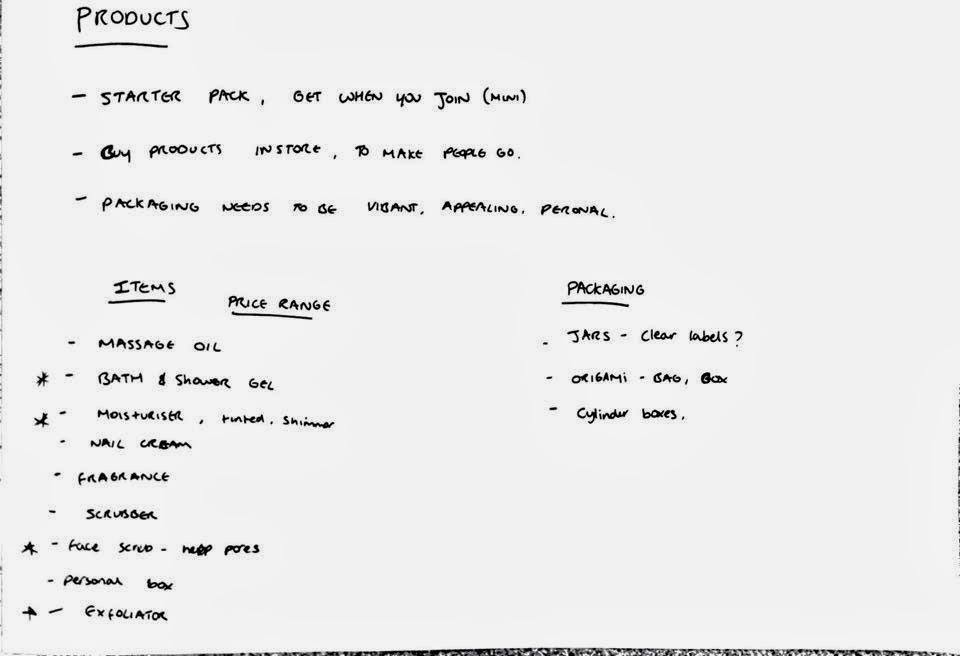 PRODUCTS
- STARTER PACK, GET WHEN YOU JOIN (MINI)
- BUY PRODUCTS INSTORE, TO MAKE PEOPLE GO.
- PACKAGING NEEDS TO BE VIBANT, APPEALING, PERONAL.
ITEMS
PRICE RANGE
- MASSAGE OIL
* - BATH & Shower GEL
* - MOISTURISER, tinted, shimmer
- NAIL CREAM
- FRAGRANCE
- SCRUBBER
* - face scrub - help pores
- personal box
* - EXFOLIATOR
PACKAGING
- JARS - Clear labels?
- ORIGAMI - BAG, BOX
- Cylinder boxes.